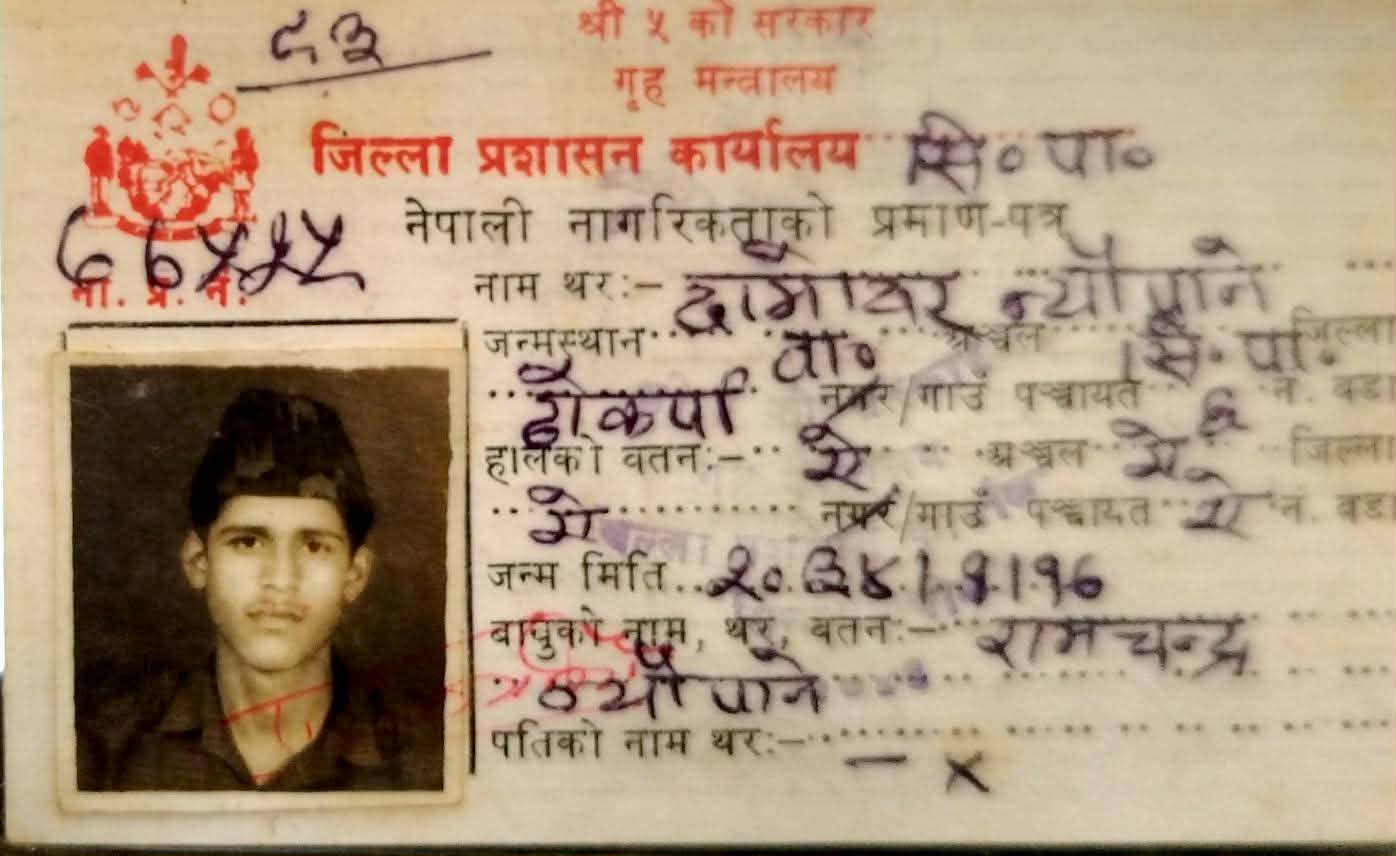 ९३
श्री ५ को सरकार
गृह मन्त्रालय
जिल्ला प्रशासन कार्यालय सि० पा०
नेपाली नागरिकताको प्रमाण-पत्र
ना. प्र. नं.
नाम थर:- दामोदर न्यौपाने
जन्मस्थान वा० अञ्चल सि० पा० जिल्ला
नगर/गाउं पञ्चायत ६ नं. वडा
हालको वतन:- ऐ अञ्चल ऐ जिल्ला
ऐ नगर/गाउं पञ्चायत ऐ नं. वडा
जन्म मिति २०३४।१।१६
बाबुको नाम, थर, वतन:- रामचन्द्र
न्यौपाने
पतिको नाम थर:- - x